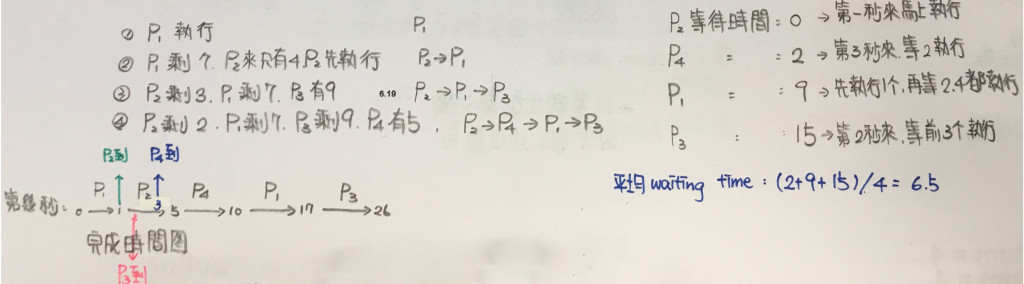 ① P₁ 執行 P₁
② P₁ 剩 7. P₂來只有4 P₂先執行 P₂→P₁
③ P₂ 剩 3. P₁ 剩 7. P₃ 有 9 6.19 P₂→P₁→P₃
④ P₂剩 2. P₁剩 7. P₃ 剩 9. P₄ 有 5. P₂→P₄→P₁→P₃
P₂到 P₄到
P₁ P₂ P₄ P₁ P₃
第幾秒: 0 → 1 → 3, 5 → 10 → 17 → 26
完成時間圖
P₃到
P₂ 等待時間: 0 → 第一秒來馬上執行
P₄ = : 2 → 第3秒來, 等2執行
P₁ = : 9 → 先執行1个, 再等 2.4 都執行
P₃ = : 15 → 第2秒來, 等前3个執行
平均 waiting time : (2+9+15)/4 = 6.5